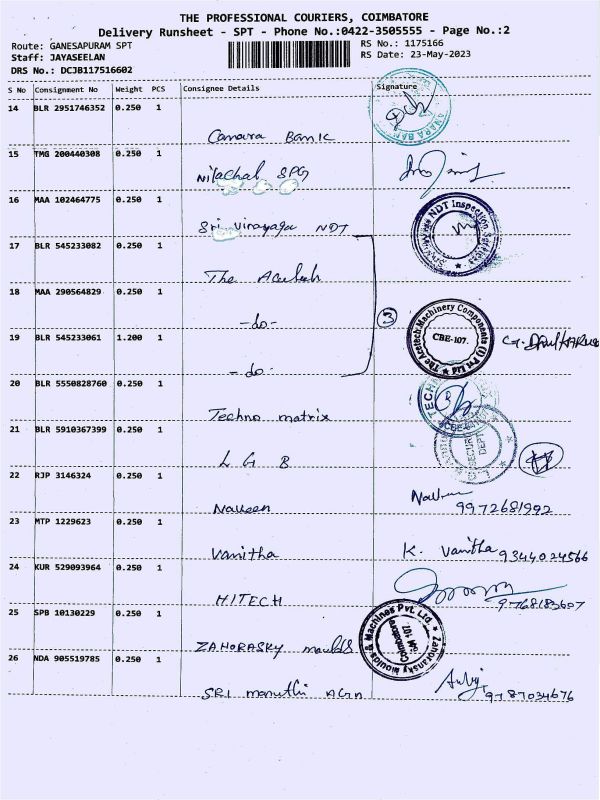 THE PROFESSIONAL COURIERS, COIMBATORE
Delivery Runsheet - SPT - Phone No.:0422-3505555 - Page No.:2
Route: GANESAPURAM SPT RS No.: 1175166
Staff: JAYASEELAN RS Date: 23-May-2023
DRS No.: DCJB117516602
S No Consignment No Weight PCS Consignee Details Signature
14 BLR 2951746352 0.250 1
Canara Bank
15 TMG 200440308 0.250 1
Nilachal SPG
16 MAA 102464775 0.250 1
Sri Vinayaga NDT
NDT Inspection Services
17 BLR 545233082 0.250 1
The
18 MAA 290564829 0.250 1
-do-
③
19 BLR 545233061 1.200 1
The Aretech Machinery Components (I) Pvt Ltd
CBE-107.
-do-
20 BLR 5550828760 0.250 1
Techno matrix
21 BLR 5910367399 0.250 1
SECURITY
DEPT
L G B
22 RJP 3146324 0.250 1
Naveen
9972681992
23 MTP 1229623 0.250 1
Vanitha K. Vanitha 9344024566
24 KUR 529093964 0.250 1
HITECH 9768183607
25 SPB 10130229 0.250 1
Zahoransky Moulds & Machines Pvt. Ltd.
Coimbatore
641 107.
ZAHORASKY moulds
26 NDA 905519785 0.250 1
SRI maruthi Agn 9787034676